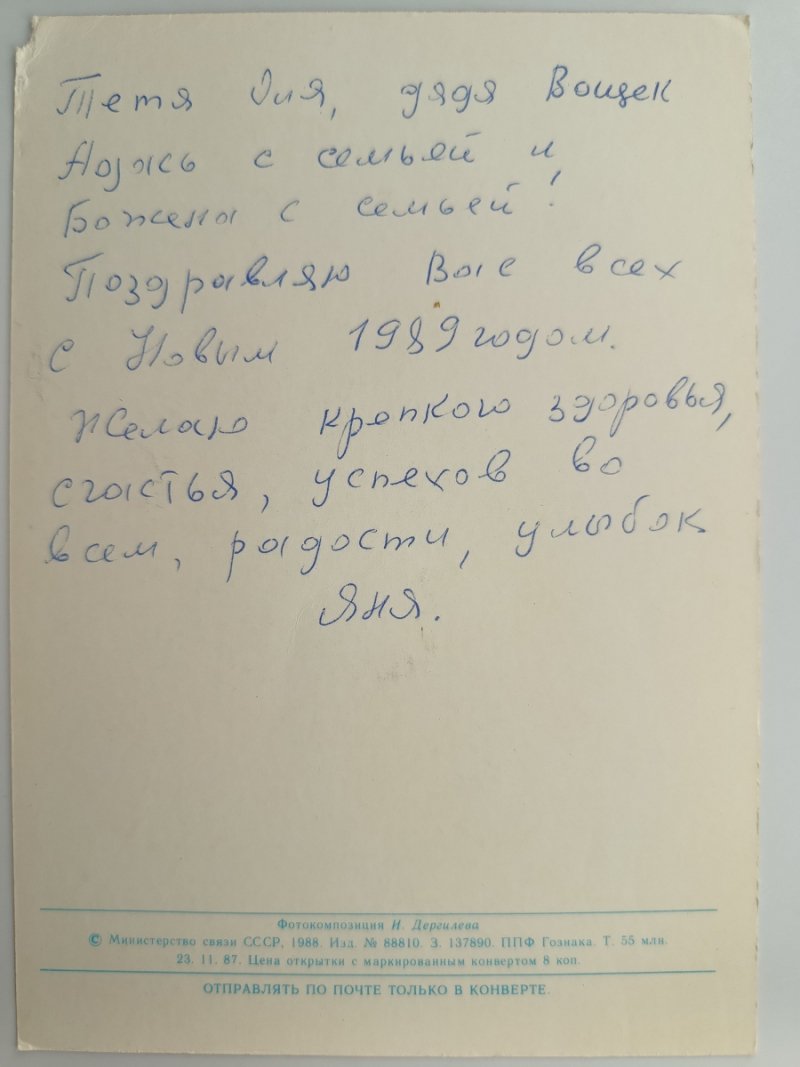 Тетя Оля, дядя Вощек
с семьей и
Божена с семьей!
Поздравляю Вас всех
с Новым 1989 годом.
Желаю крепкого здоровья,
счастья, успехов во
всем, радости, улыбок
Яня.
Фотокомпозиция И. Дергилева
© Министерство связи СССР, 1988. Изд. № 88810. З. 137890. ППФ Гознака. Т. 55 млн.
23. 11. 87. Цена открытки с маркированным конвертом 8 коп.
ОТПРАВЛЯТЬ ПО ПОЧТЕ ТОЛЬКО В КОНВЕРТЕ.